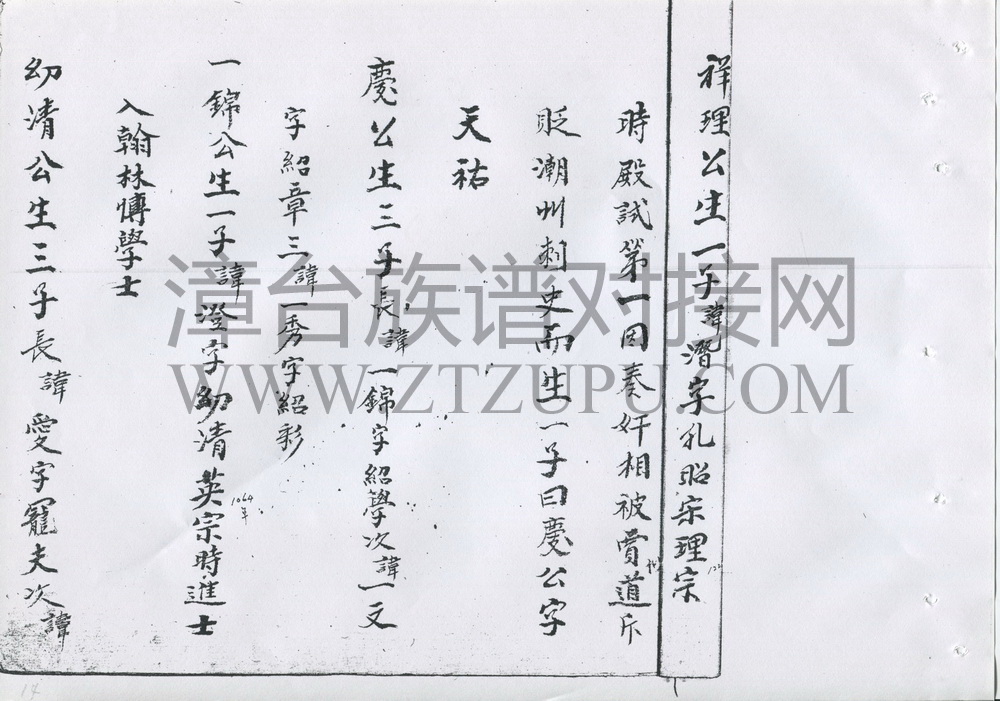 祥理公生一子諱潛字孔昭宋理宗
時殿試第一因奏奸相被賈道斥
貶潮州刺史而生一子曰慶公字
天祐
慶公生三子長諱一錦字紹學次諱一文
字紹章三諱一秀字紹彩
一錦公生一子諱澄字幼清英宗時進士
1064年
入翰林博學士
幼清公生三子長諱愛字寵夫次諱
漳台族谱对接网
WWW.ZTZUPU.COM
14